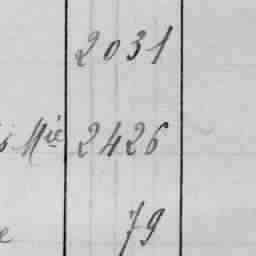 2031
s Mie 2426
79
e